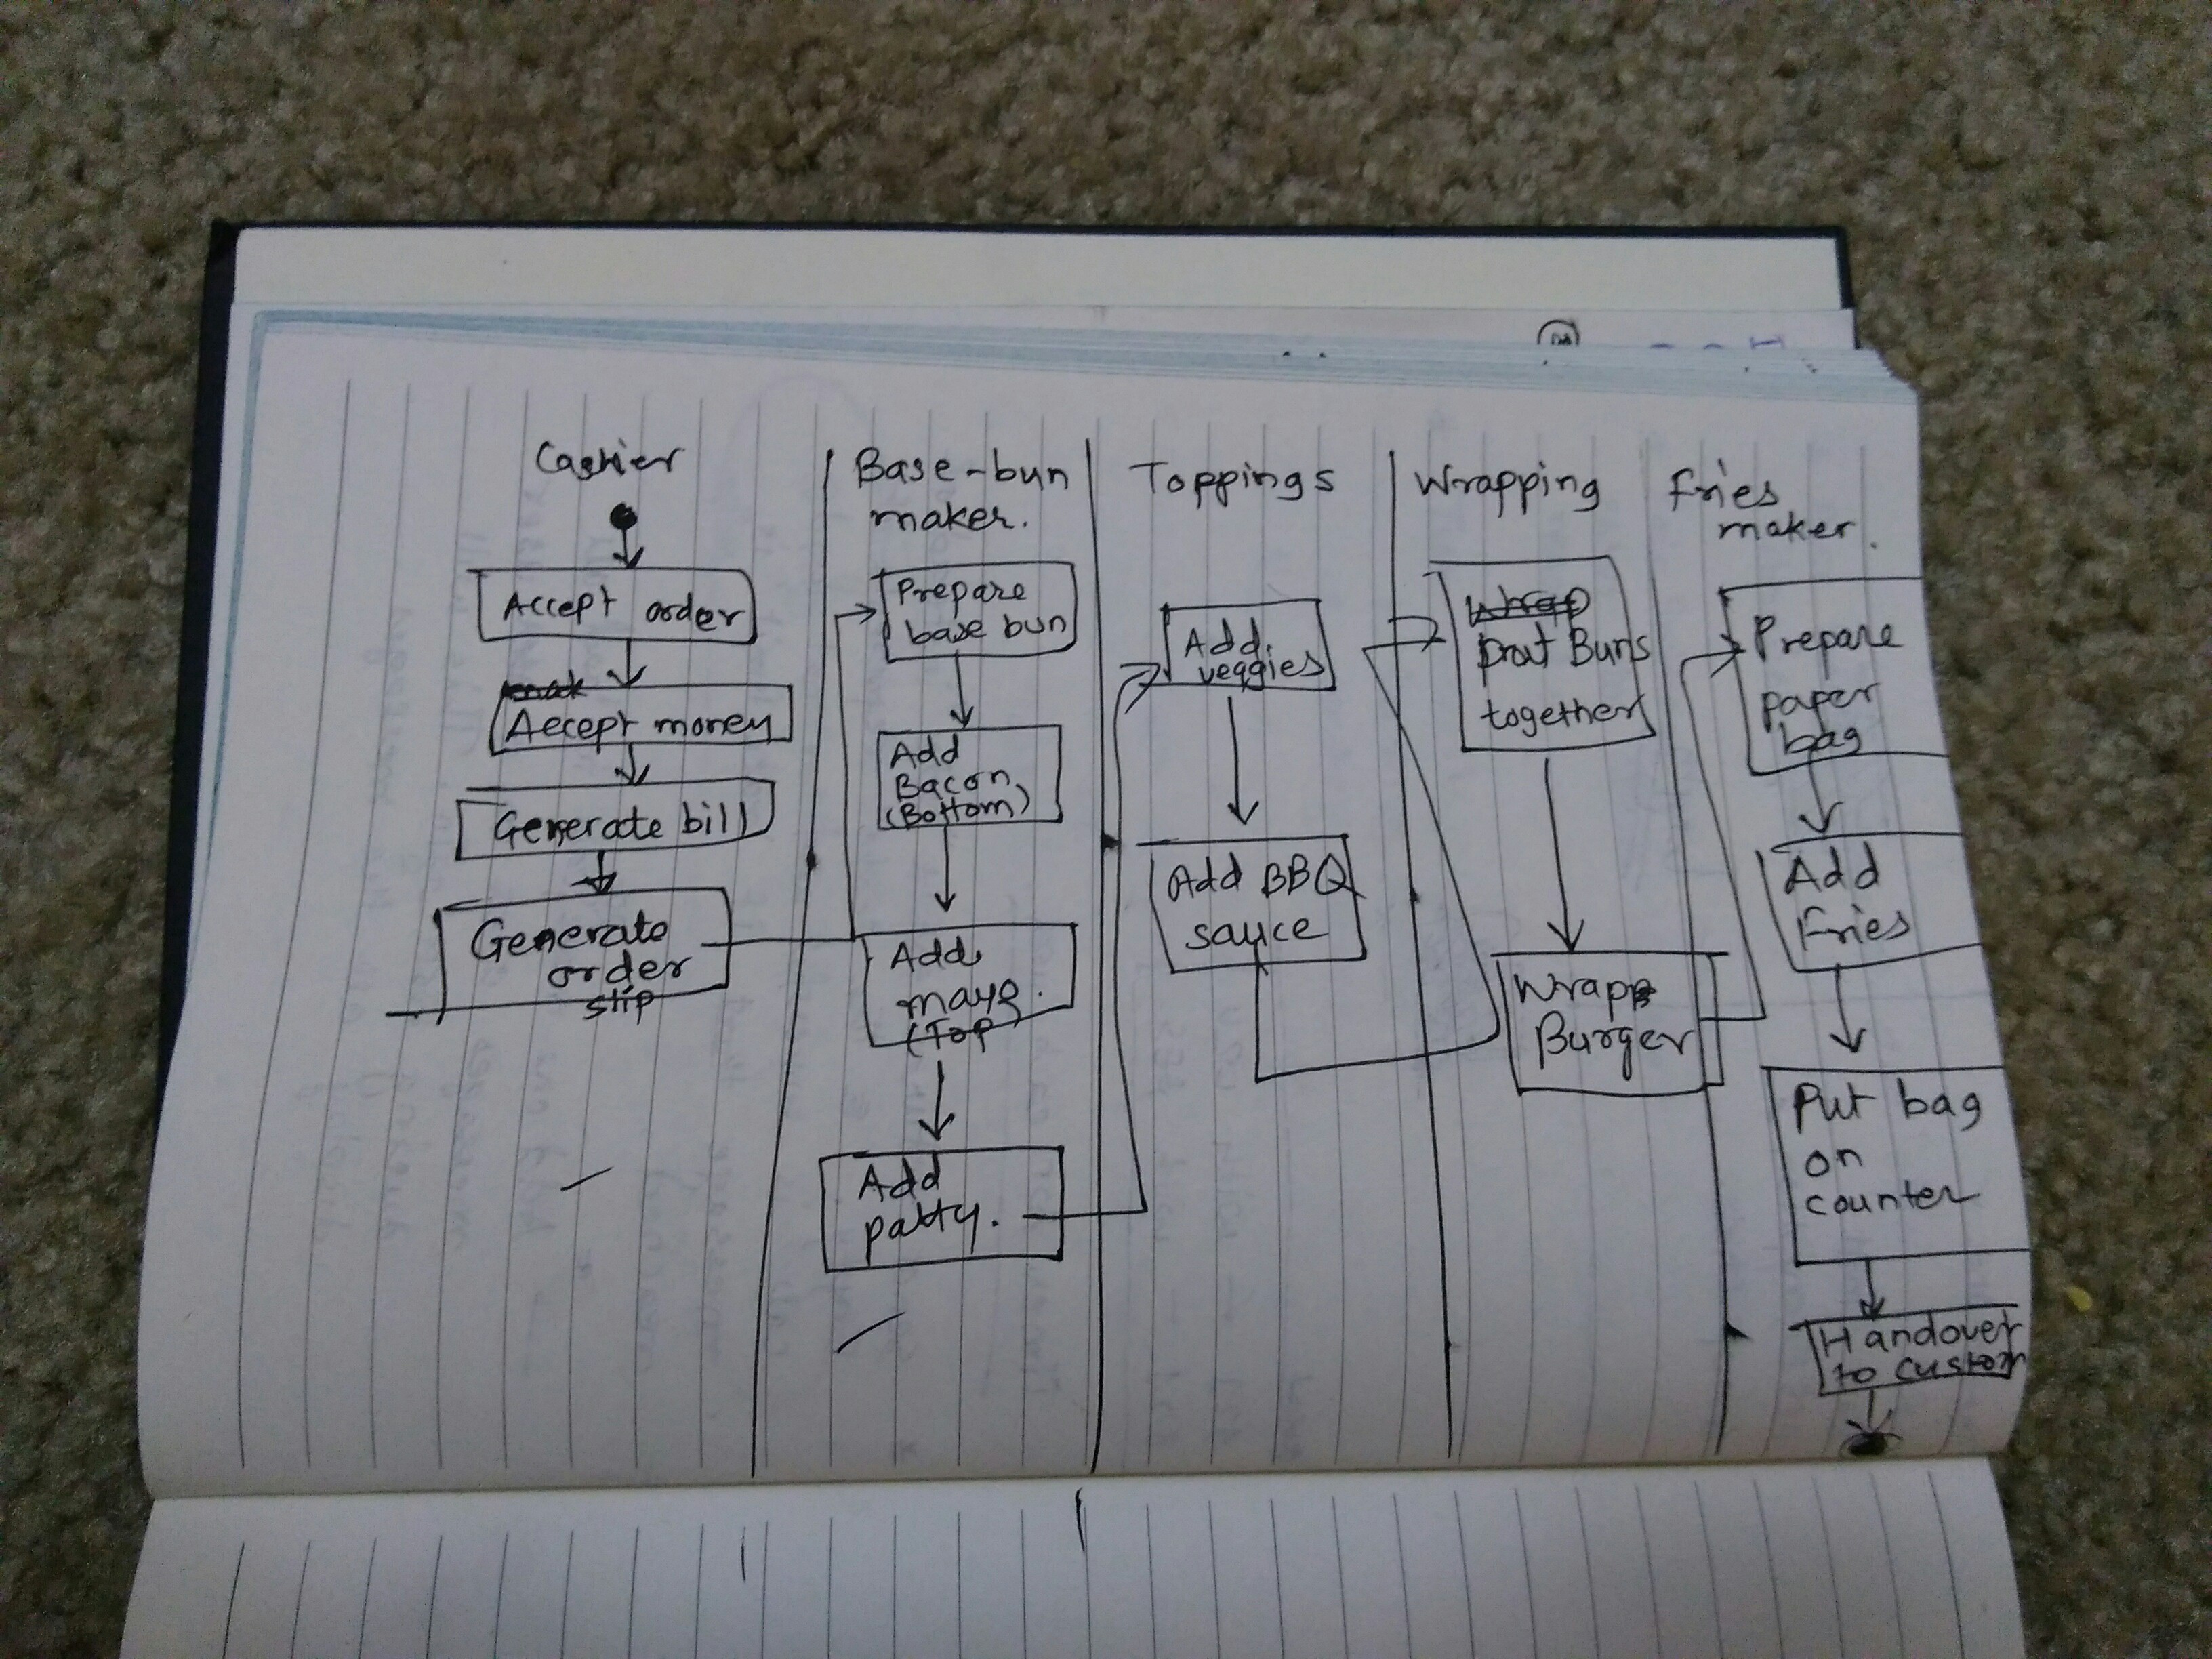 Cashier
Accept order
Accept money
Generate bill
Generate
order
slip
Base-bun
maker.
Prepare
base bun
Add
Bacon
(Bottom)
Add
mayo.
(Top)
Add
patty.
Toppings
Add
veggies
Add BBQ
sauce
Wrapping
Wrap
put Buns
together
Wrapp
Burger
Fries
maker.
Prepare
paper
bag
Add
Fries
Put bag
on
counter
Handover
to custom